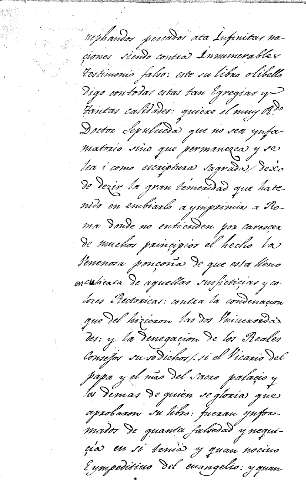 nephandos pecados ata Infinitas na
ciones siendo contra Innumerables
testimonio falso: este su libro o libello
digo con todas estas tan Egregias y
tantas calidades: quiere el muy Rdo
Doctor Sepulueda que no sea ynfa
matorio sino que permanezca y se
lea como escriptura sagrada dexo
de dezir la gran temeridad que ha te
nido en embiarle a ymprimir a Ro
ma donde no entienden por carecer
de muchos principios el hecho la
venenosa ponçoña de que esta lleno
de aquellos supsticias y co
lores Rectoricas: contra la condenacion
que del hizieron las dos Vniuersida
des: y la denegacion de los Reales
Consejos susodichos: si el Vicario del
papa y el mro del Sacro palacio y
los demas de quien se gloria que
aprobaron su libro: fueran ynfor
mados de quanta falsedad y nequi
cia en si tenia y quan nociuo
E ympeditiuo del euangelio: y quan